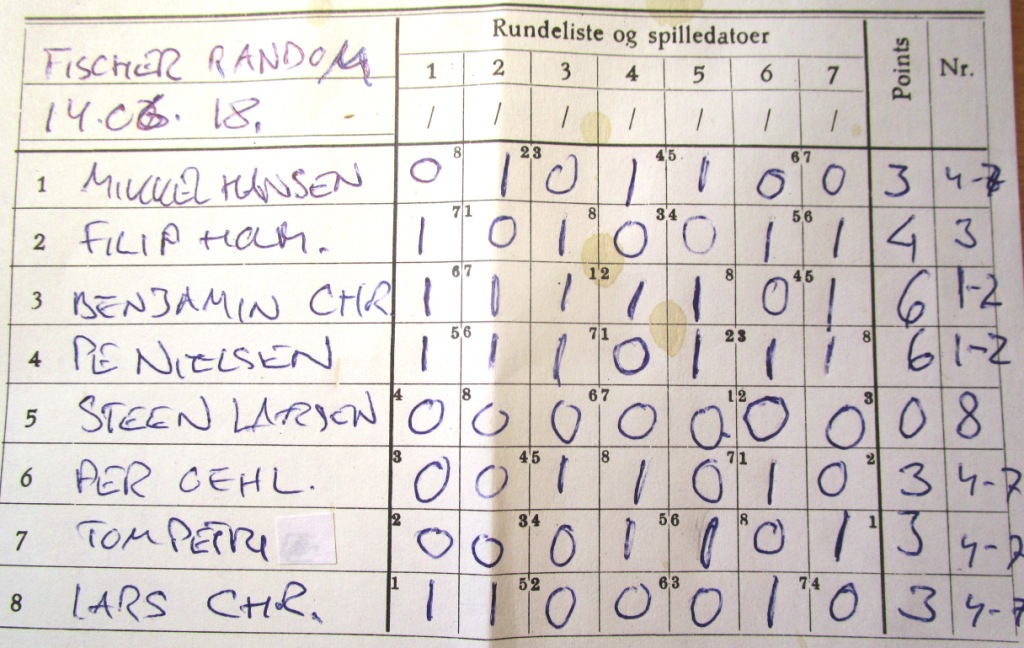 Rundeliste og spilledatoer
FISCHER RANDOM 1 2 3 4 5 6 7 Points Nr.
14.06. 18. / / / / / / /
1 MIKKEL HANSEN 0 8 1 2 3 0 1 4 5 1 0 6 7 0 3 4-7
2 FILIP HOLM. 1 7 1 0 1 8 0 3 4 0 1 5 6 1 4 3
3 BENJAMIN CHR 1 6 7 1 1 1 2 1 1 8 0 4 5 1 6 1-2
4 PE NIELSEN 1 5 6 1 1 7 1 0 1 2 3 1 1 8 6 1-2
5 STEEN LARSEN 4 0 8 0 0 6 7 0 0 1 2 0 0 3 0 8
6 PER OEHL. 3 0 0 4 5 1 8 1 0 7 1 1 0 2 3 4-7
7 TOM PETRI 2 0 0 3 4 0 1 5 6 1 8 0 1 1 3 4-7
8 LARS CHR. 1 1 1 5 2 0 0 6 3 0 1 7 4 0 3 4-7